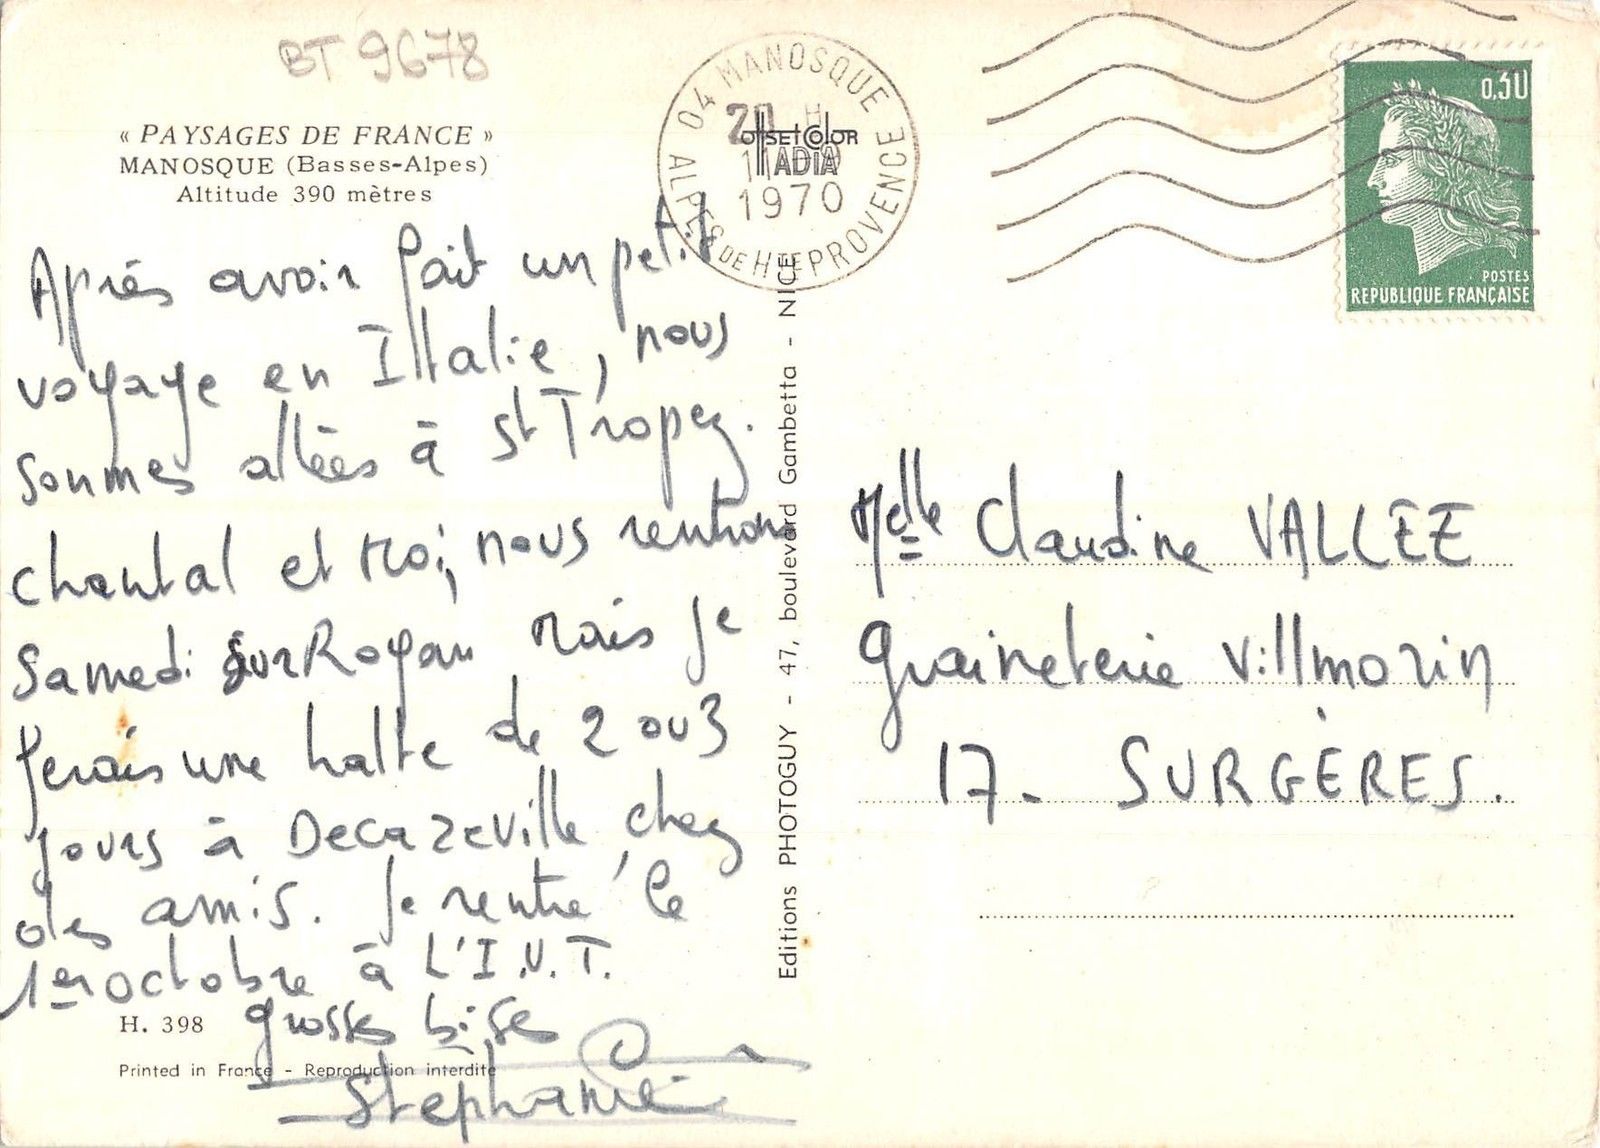 BT 9678
« PAYSAGES DE FRANCE »
MANOSQUE (Basses-Alpes)
Altitude 390 mètres
Après avoir fait un petit
voyage en Ittalie, nous
sommes allées à St Tropez.
Chantal et Moi, nous rentrons
Samedi sur Royan Mais je
ferais une halte de 2 ou 3
jours à Decazeville, chez
des amis. Je rentre le
1er octobre à L'I.U.T.
grosses bises
Stéphanie
H. 398
Printed in France - Reproduction interdite
Editions PHOTOGUY - 47, boulevard Gambetta - NICE
04 MANOSQUE
ALPES DE HTE PROVENCE
20 H
1970
offset Color
ADIA
0,30
POSTES
REPUBLIQUE FRANÇAISE
Melle Claudine VALLEE
Graineterie Villmorin
17 - SURGÈRES.